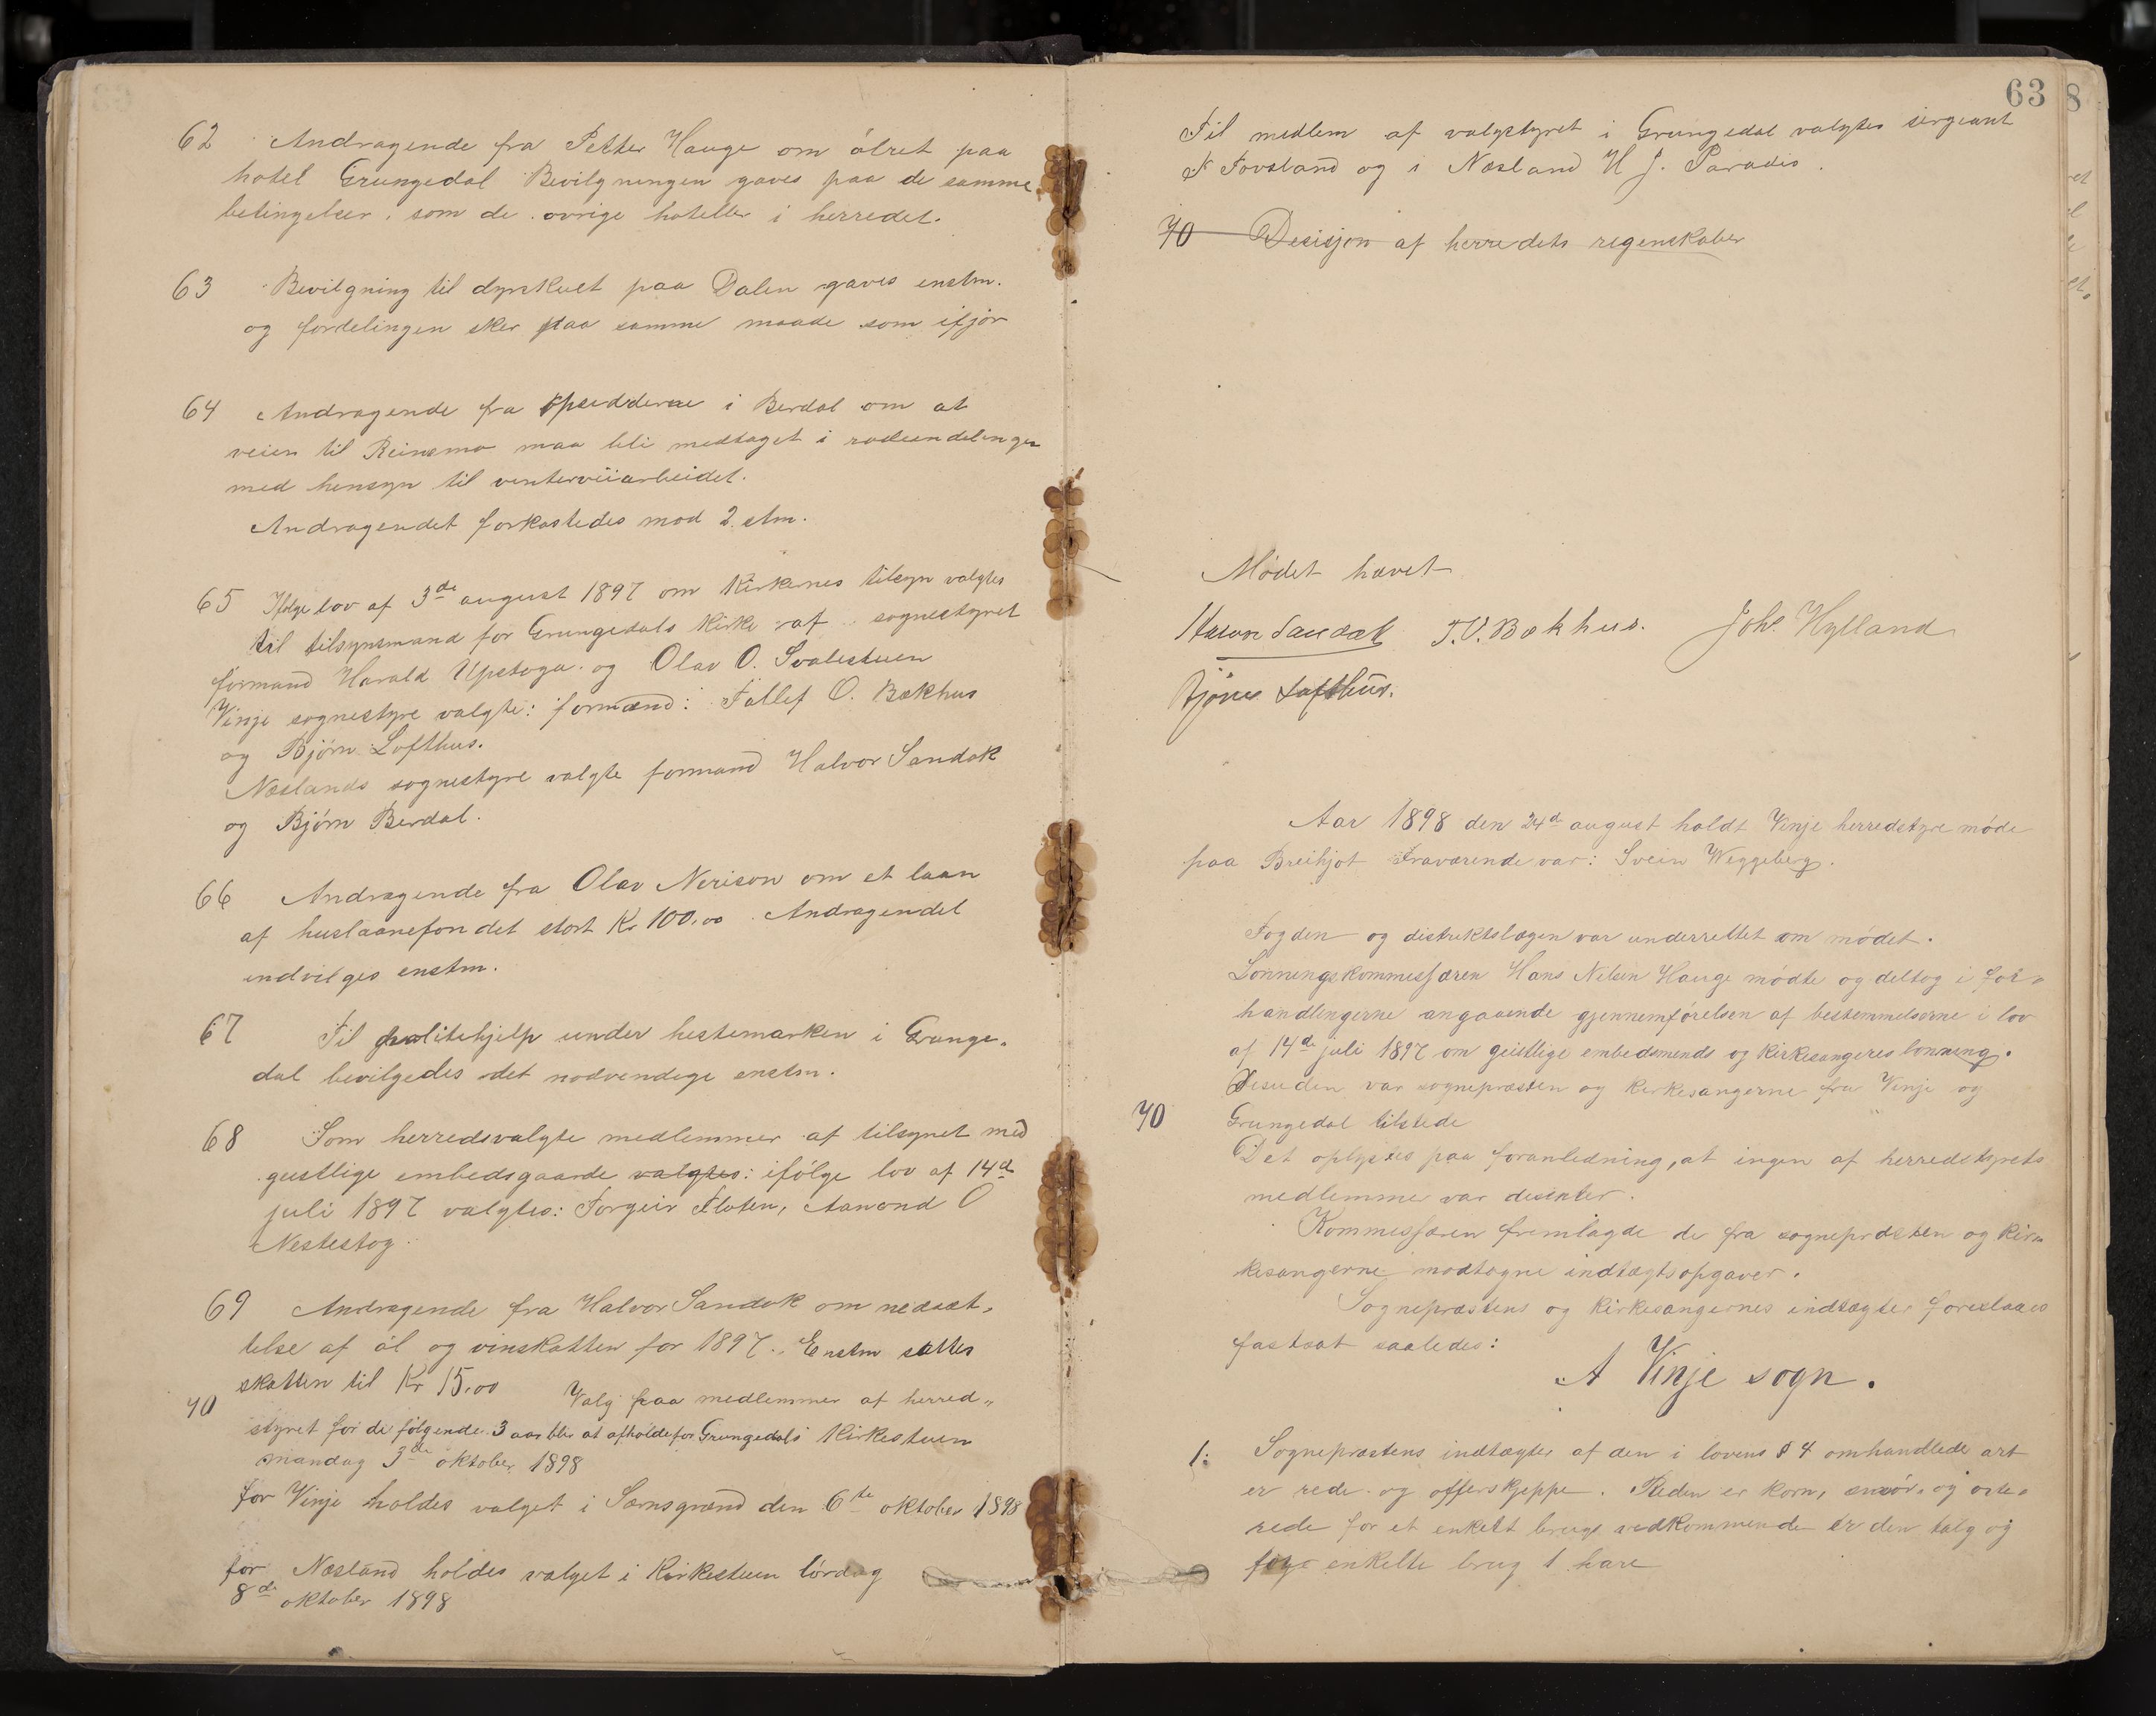 62 Andragende fra Petter Hauge om ólret paa
hotel Grungedal Bevilgningen gaves paa de samme
betingelser, som de øvrige hoteller i herredet.
63 Bevilgning til dyrskuet paa Dalen gaves enstm.
og fordelingen sker paa samme maade som ifjor
64 Andragende fra opsidderne i Berdal om at
veien til Reinsmo maa bli medtaget i rodeinndelingen
med hensyn til vinterveiarbeidet.
Andragendet forkastedes mod 2 stm.
65 Ifølge lov af 3de august 1897 om Kirkernes tilsyn valgtes
til tilsynsmænd for Grungedals Kirke af sognestyret
formand Harald Upstoga og Olav O. Svalestuen
Vinje sognestyre valgte: formænd: Tallef O. Bækhus
og Bjórn Lofthus.
Næslands sognestyre valgte formand Halvor Sandok
og Bjórn Berdal.
66 Andragende fra Olav Nerison om et laan
af huslaanefondet stort Kr 100,00. Andragendet
indvilges enstm.
67 Til politihjelp under hestemarken i Grunge„
dal bevilgedes det nødvendige enstm.
68 Som herredsvalgte medlemmer af tilsynet med
geistlige embedsgaarde valgtes: ifólge lov af 14de
juli 1897 valgtes: Torgeir Floten, Aamond O
Nestestog.
69 Andragende fra Halvor Sandok om nedsæt„
telse af ól og vinskatten for 1897. Enstm sattes
skatten til Kr 15,00
70 Valg paa medlemmer af herred„
styret for de fólgende 3 aar blir at afholde for Grungedal i Kirkestuen
mandag 3de oktober 1898
for Vinje holdes valget i Særnsgrænd den 6te oktober 1898
for Næsland holdes valget i Kirkestuen lórdag
8de oktober 1898
63
Til medlem af valgstyret i Grungedal valgtes sergeant
K Tovsland og i Næsland H J. Paradis.
70 Desisjon af herredets regnskaber
Módet hævet
Halvor Sandok T. O. Bækhus. Johs. Hylland
Bjórn Lofthus.
Aar 1898 den 24de august holdt Vinje herredstyre móde
paa Breihjot Fraværende var: Svein Weggeberg.
Fogden og distriktslægen var underrettet om módet.
Lønningskommissæren Hans Nelsen Hauge módte og deltog i for„
handlingerne angaaende gjennemfórelsen af bestemmelserne i lov
af 14de juli 1897 om geistlige embedsmends og Kirkesangeres lønning.
Desuden var sognepræsten og kirkesangerne fra Vinje og
70 Grungedal tilstede
Det oplystes paa foranledning, at ingen af herredstyrets
medlemmer var dissenter.
Kommissæren fremlagde de fra sognepræsten og kir„
kesangerne modtagne indtægtsopgaver.
Sognepræstens og kirkesangernes indtægter foreslaaes
fastsat saaledes:
A Vinje sogn.
1: Sognepræstens indtægter af den i lovens § 4 omhandlede art
er rede og offerskjeppe. Reden er korn, smór og oste„
rede for et enkelt brugs vedkommende er den talg og
enkelte brug 1 hare